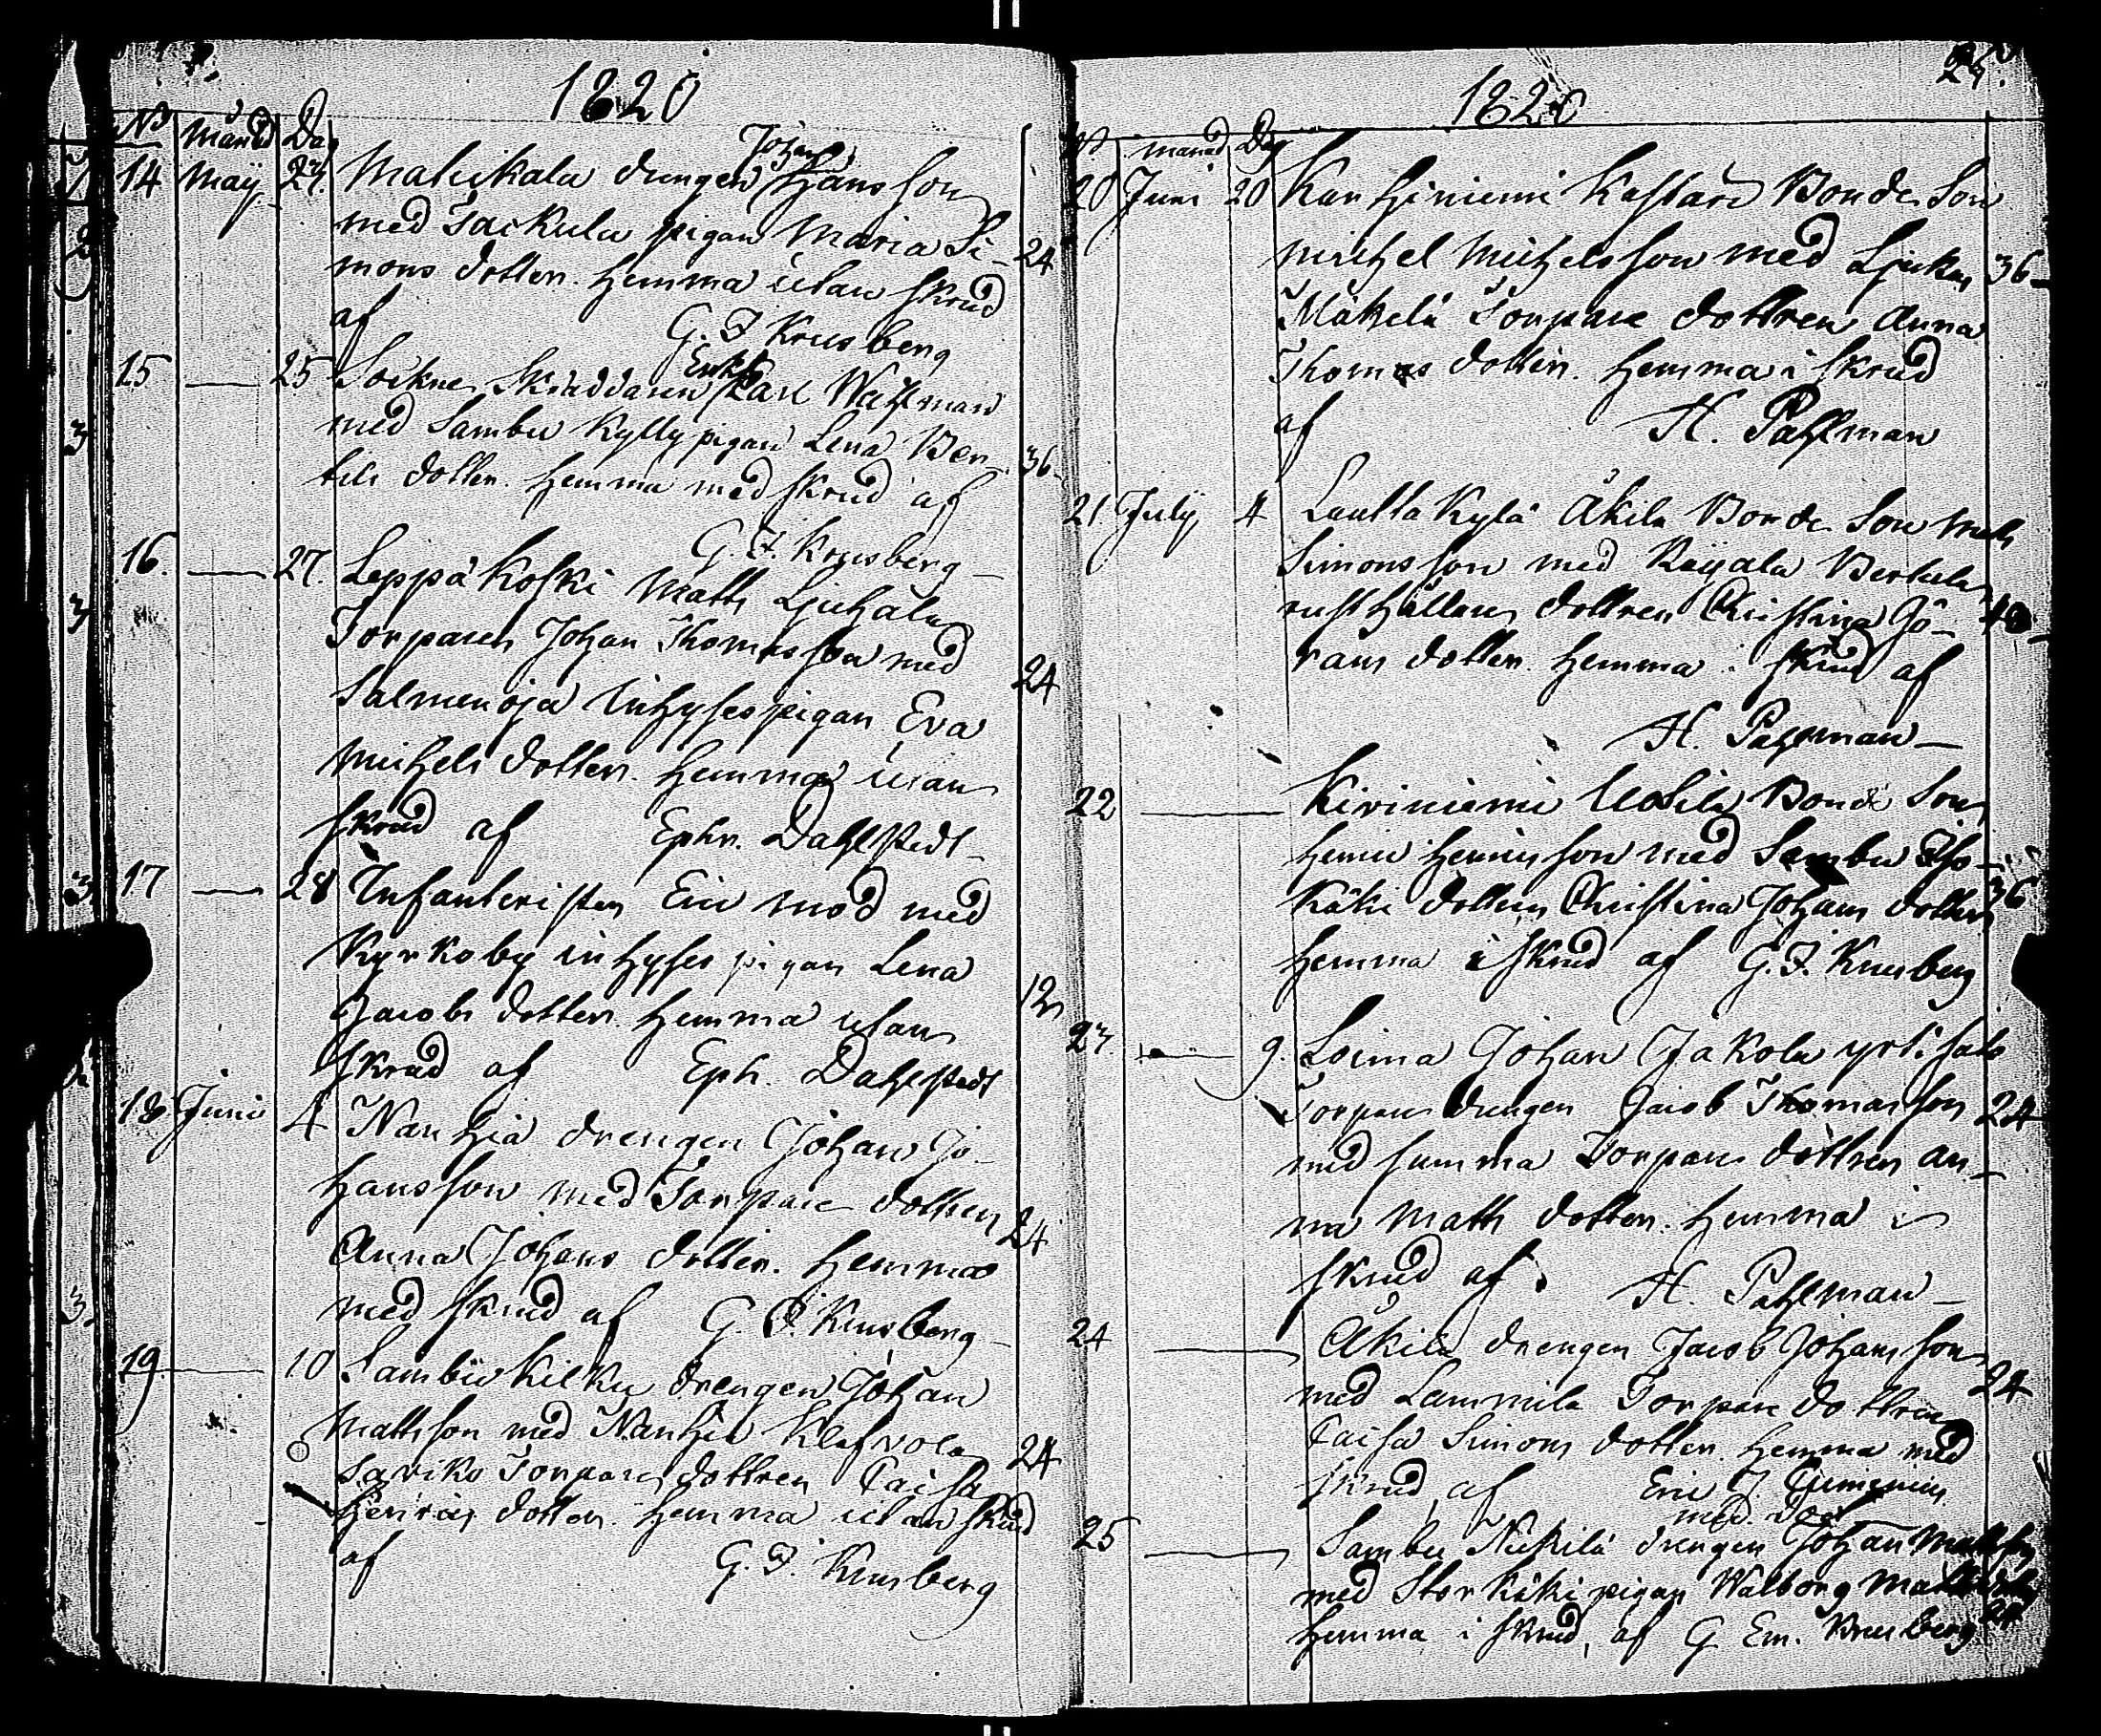 1820
No Månad Dag
14 May 24. Mahikala drengen Johan Hansson
med Taikula pigan Maria Si- 24
mons dotter. hemma utan skrud
af G. F. Krusberg
15 — 25 Sockne Skräddaren Enkl. Karl Wahlman
med Sambu Kylly pigan Lena Ber- 36
tils dotter. hemma med skrud af
G. F. Krusberg
16. — 27. Leppäkoski Matts Ljuhala
Torparen Johan Thomasson med 24
Salmenoja Inhyses pigan Eva
Michels dotter. hemma utan
skrud af Ephr. Dahlstedt
17 — 28 Infanteristen Eric Mod med
Kyrkoby inhyses pigan Lena 12
Jacobs dotter. hemma utan
skrud af Eph. Dahlstedt
18 Juni 4 Nanhia drengen Johan Jo-
hansson med Torpare dottren 24
Anna Johans dotter. hemma
med skrud af G. F. Krusberg
19 — 10 Sambu Kilku drengen Johan
Mattsson med Nanhia Klafvola 24
Saviko Torpare dottren Caisa
Henrics dotter. hemma utan skrud
af G. F. Krusberg
25.
1820
No månad Dag
20 Juni 20 Kanhiniemi Kastari Bonde Son
Michel Michelsson med Ljuku 36
Mäkilä Torpare dottren Anna
Thomas dotter. hemma i skrud
af H. Pahlman
21 July 4 Lauttakylä Äkilä Bonde Son Matts
Simonsson med Raijala Bertula
rusthållars dottren Christina Jö-
rans dotter. hemma i skrud af
H. Pahlman
22 — Kiviniemi Uotila Bonde Son
Henric Henricsson med Sambu Iso
Käki dottren Christina Johans dotter 36
hemma i skrud af G. F. Krusberg
23. — 9. Loima Johan Jakola
Torpare drengen Jacob Thomasson 24
med summa Torpare dottren An-
na Matts dotter. hemma i
skrud af H. Pahlman
24 — Äkilä drengen Jacob Johansson 24
med Lammila Torpare dottren
Caisa Simons dotter. hemma med
skrud af Eric J.
25 — Sambu Nickilä drengen Johan Mattsson
med Storkäki pigan Walborg Matts dotter 24
hemma i skrud, af G. Em. Krusberg